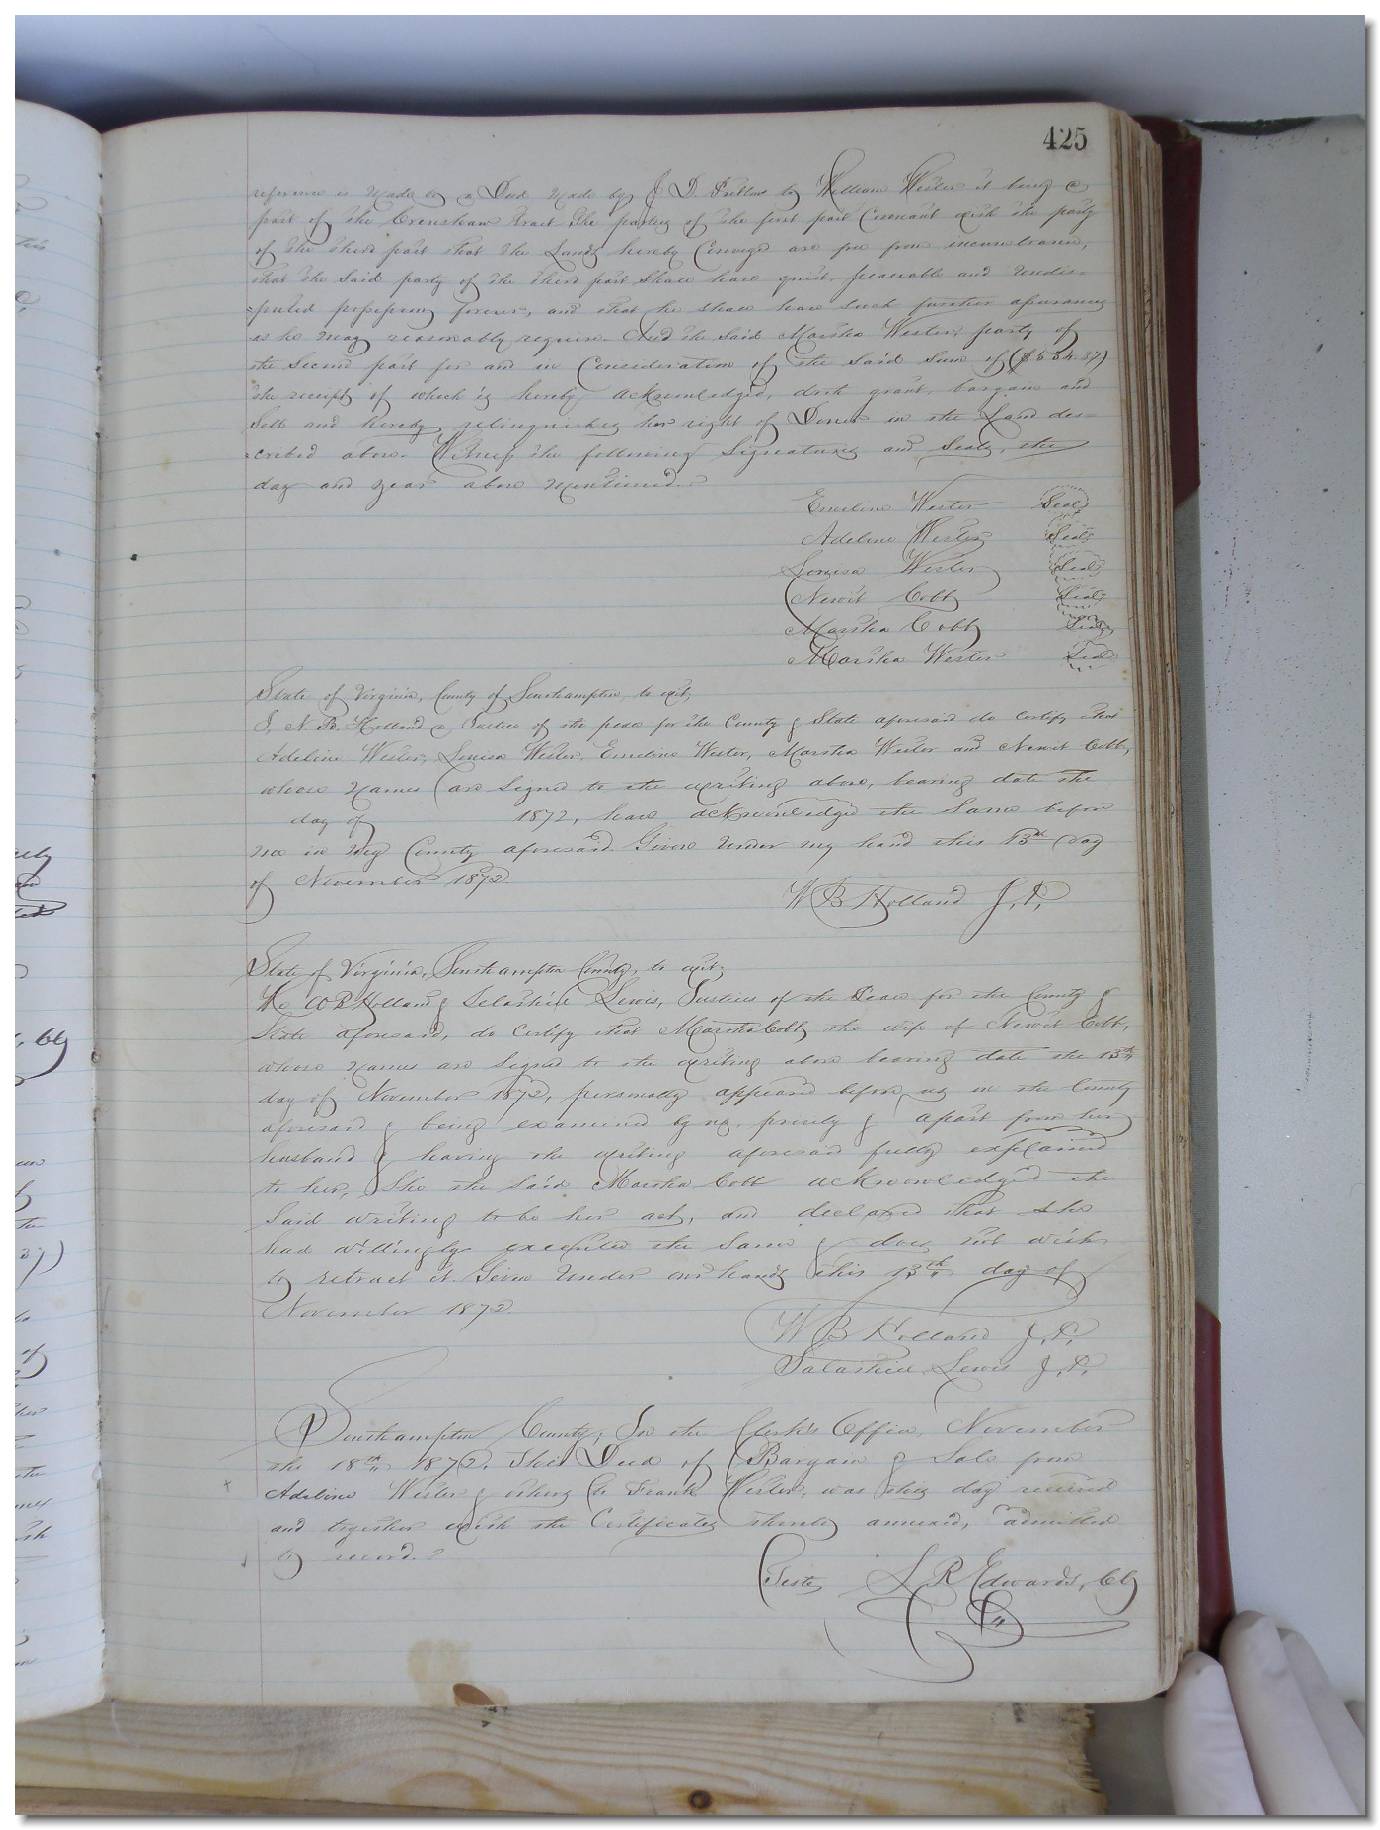 425
reference is made to a Deed made by J. D. Pretlow to William Wester it being a
part of the Crenshaw tract. The parties of the first part Covenant with the party
of the third part that the Lands hereby Conveyed are free from incumbrances,
that the said party of the third part shall have quiet, peaceable and undis-
-puted possession forever, and that he shall have such further assurances
as he may reasonably require. And the said Martha Wester, party of
the second part for and in Consideration of the said Sum of ($554.87)
the receipt of which is hereby acknowledged, doth grant, bargain and
Sell and hereby relinquishes her right of Dower in the Land des-
-cribed above. Witness the following Signatures and Seals, the
day and year above mentioned.
Emeline Wester Seal
Adeline Wester Seal
Louisa Wester Seal
Newit Cobb Seal
Martha Cobb Seal
Martha Wester Seal
State of Virginia, County of Southampton to wit,
I, W. B. Holland a Justice of the peace for the County & State aforesaid do certify that
Adeline Wester, Louisa Wester, Emeline Wester, Martha Wester and Newit Cobb,
whose names are signed to the writing above, bearing date the
day of 1872, have acknowledged the same before
me in my County aforesaid. Given under my hand this 13th day
of November 1872.
W B Holland J.P.
State of Virginia, Southampton County, to wit,
We W B Holland & Lewis, Justices of the Peace for the County &
State aforesaid, do certify that Martha Cobb the wife of Newit Cobb,
whose names are signed to the writing above bearing date the 13th
day of November 1872, personally appeared before us in the County
aforesaid & being examined by us, privily & apart from her
husband & having the writing aforesaid fully explained
to her, She the said Martha Cobb acknowledged the
said writing to be her act, and declared that she
had willingly executed the same & does not wish
to retract it. Given under our hands this 13th day of
November 1872
W B Holland J.P.
Lewis J.P.
Southampton County; In the Clerk's Office, November
the 18th 1872. This Deed of Bargain & Sale from
Adeline Wester & others to Frank Wester, was this day received
and together with the Certificates thereto annexed, admitted
to record.
Teste L R Edwards, Clk